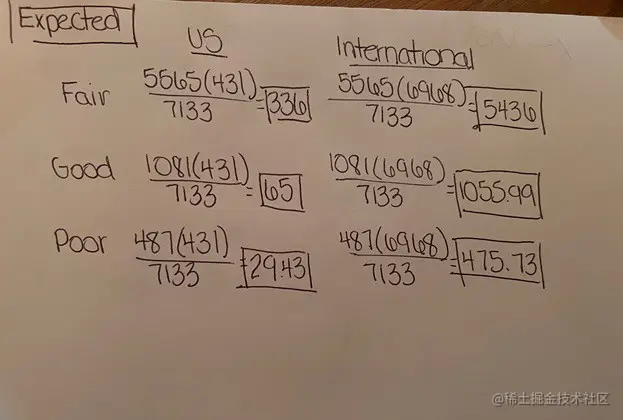 Expected
US International
Fair 5565(431)/7133 = 336 5565(6968)/7133 = 5436
Good 1081(431)/7133 = 65 1081(6968)/7133 = 1055.99
Poor 487(431)/7133 = 29.43 487(6968)/7133 = 475.73
@稀土掘金技术社区